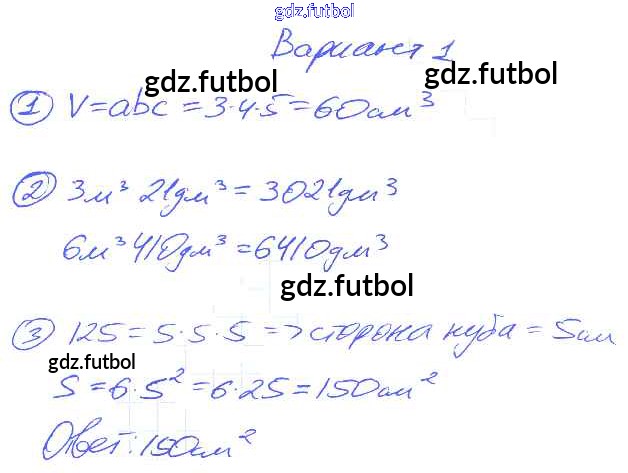 gdz.futbol
Вариант 1
gdz.futbol
① V=abc=3·4·5=60см³
② 3м³ 21дм³=3021дм³
6м³ 410дм³=6410дм³
gdz.futbol
③ 125=5·5·5=>сторона куба=5см
gdz.futbol
S=6·5²=6·25=150см²
Ответ: 150см²